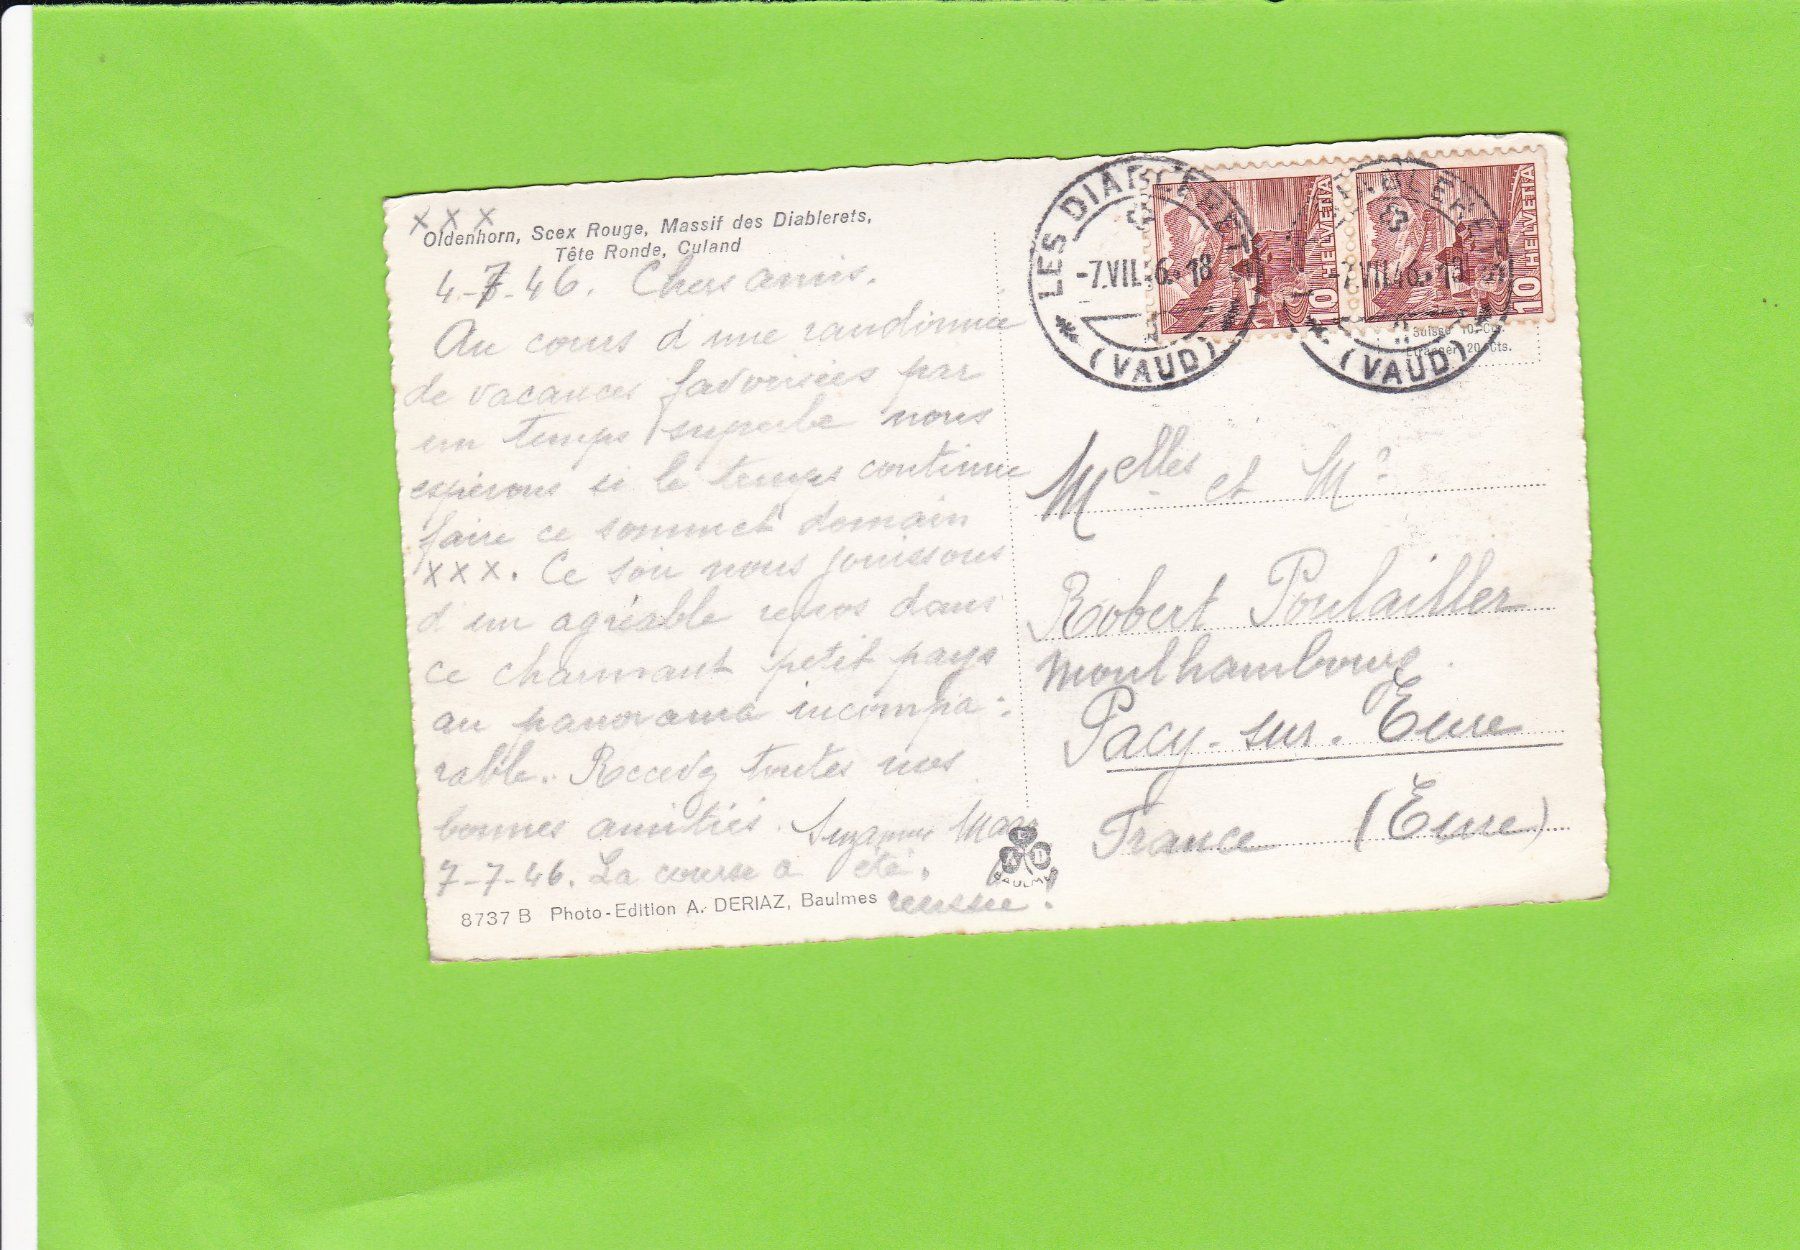 x x x
Oldenhorn, Scex Rouge, Massif des Diablerets,
Tête Ronde, Culand
4-7-46. Chers amis.
Au cours d une randonnée
de vacances favorisées par
un temps superbe nous
espérons si le temps continue
faire ce sommet demain
x x x. Ce soir nous jouissons
d un agréable repos dans
ce charmant petit pays
au panorama incompa-
rable. Recevez toutes nos
bonnes amitiés. Suzanne
7-7-46. La course a été
réussie !
8737 B Photo-Edition A. DERIAZ, Baulmes
A E D
BAULMES
LES DIABLERETS
-7.VII.46.-18
(VAUD)
10 HELVETIA
LES DIABLERETS
-7.VII.46.-18
(VAUD)
10 HELVETIA
Suisse 10 Cts.
Etranger 20 Cts.
Melles et Mr
Robert Poulailler
Pacy-sur-Eure
France (Eure)